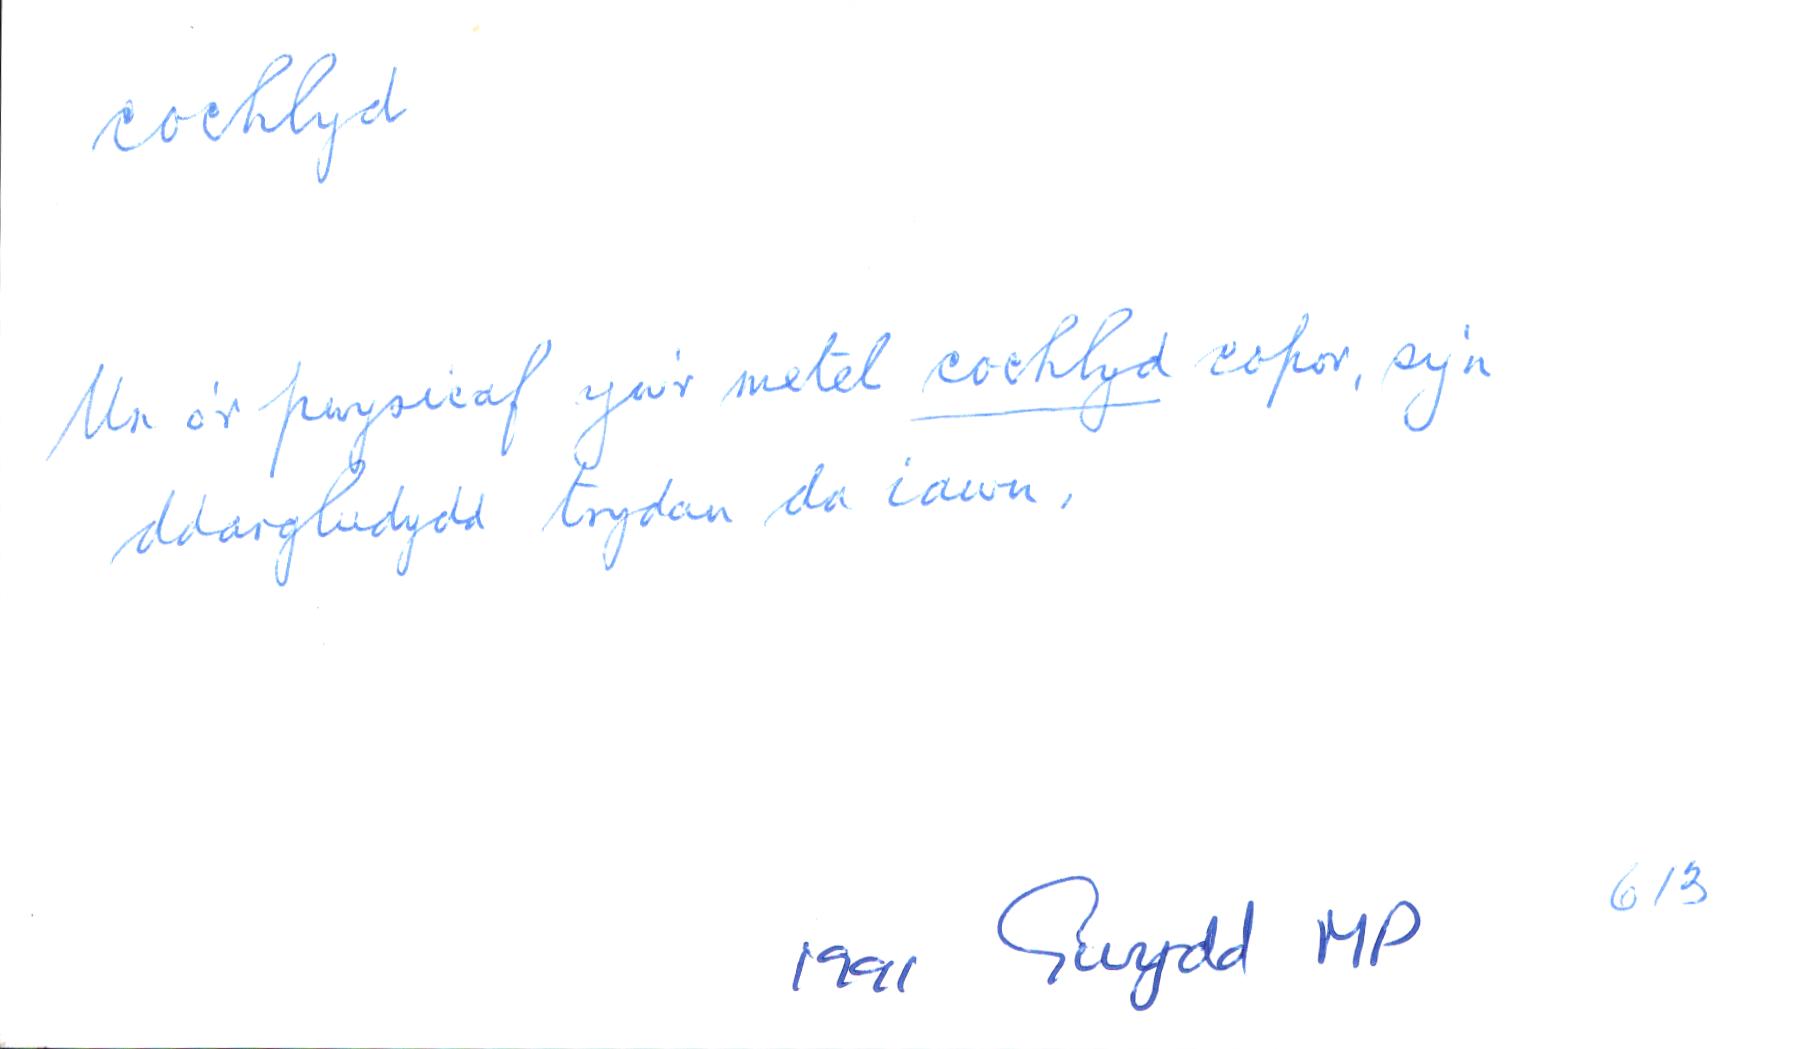 cochlyd
Un o'r pwysicaf yw'r metel cochlyd copor, sy'n
ddargludydd trydan da iawn.
6/3
1991 Gwydd MP